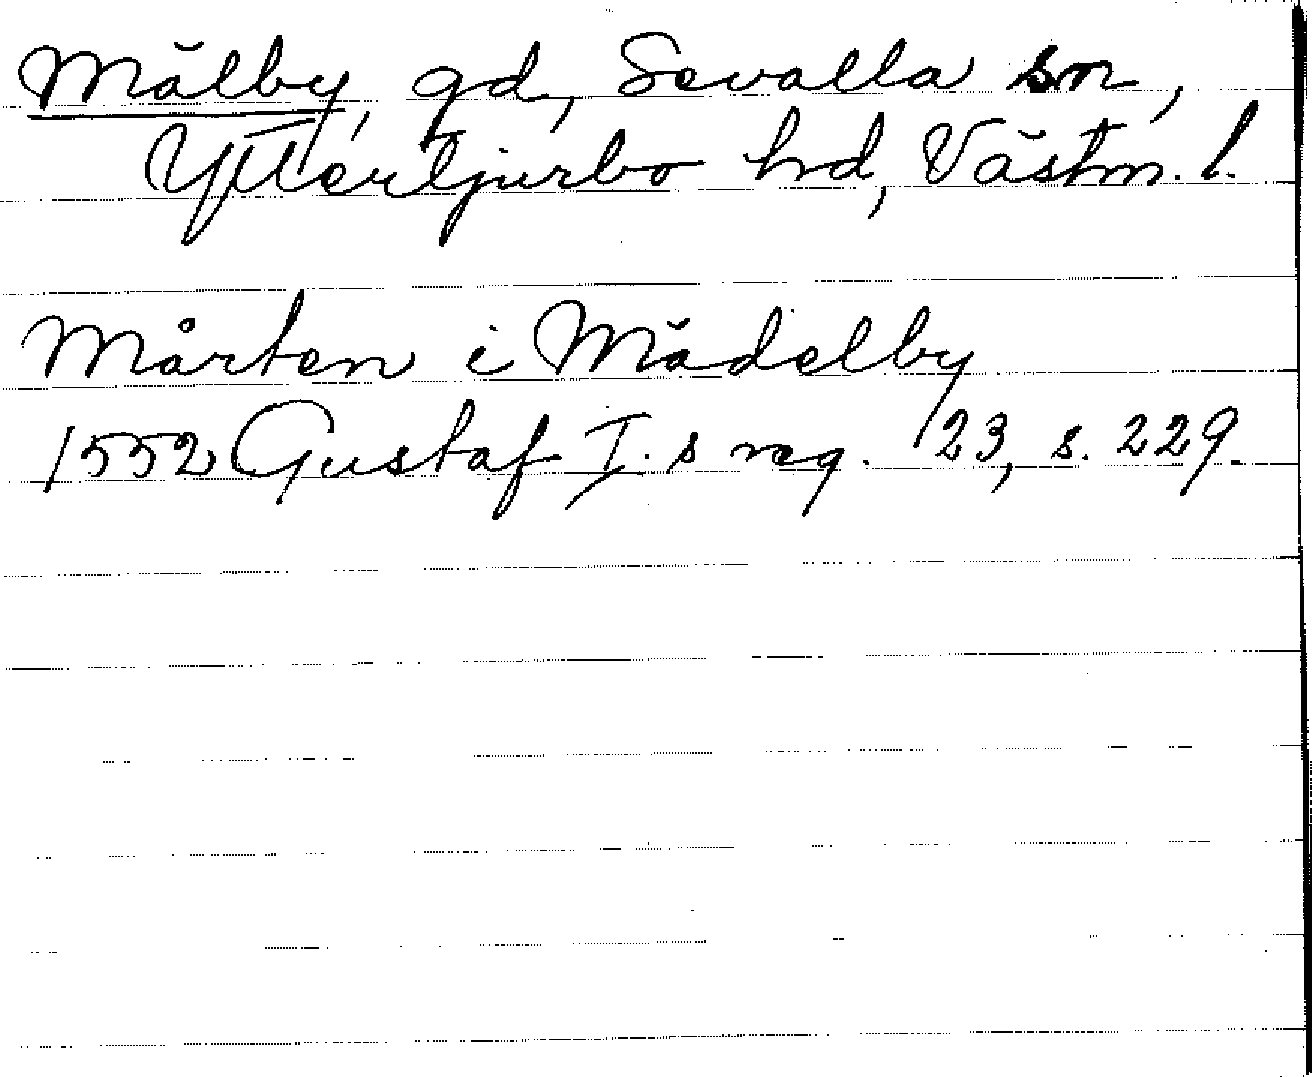 Mälby, gd, Sevalla sn,
Yttertjurbo hd, Västm. l.
Mårten i Mädelby
1552 Gustaf I.s reg. 23, s. 229.